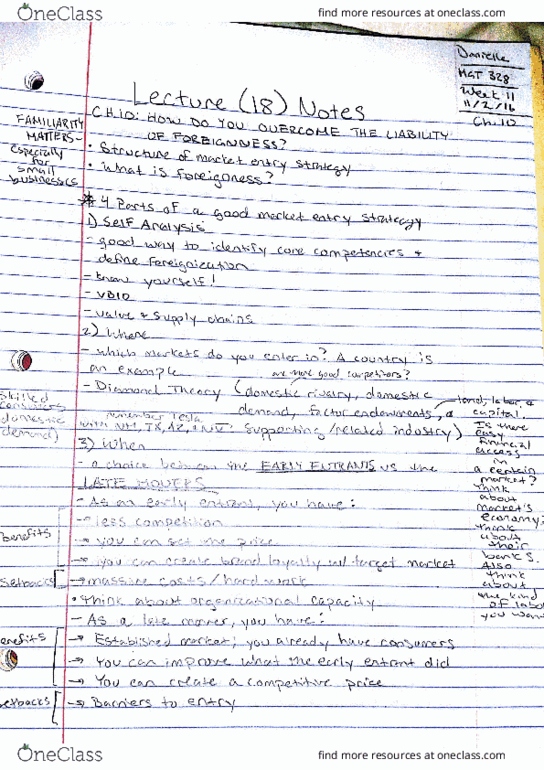 OneClass
find more resources at oneclass.com
Danielle
MGT 328
Week 11
11/2/16
Ch.10
Lecture (18) Notes
FAMILIARITY
MATTERS-
especially
for
small
businesses
CH.10: HOW DO YOU OVERCOME THE LIABILITY
OF FOREIGNNESS?
• Structure of market entry strategy
• What is foreigness?
* 4 Parts of a good market entry strategy
1) Self Analysis
- good way to identify core competencies +
define foreignization
- know yourself!
- VBID
- value & supply chains
2) Where
- which markets do you enter in? A country is
an example
are there good competitors?
- Diamond Theory (domestic rivalry, domestic
demand, factor endowments, a
supporting/related industry)
remember Tesla
with NM, TX, AZ, & NV
skilled
consumers
(domestic
demand)
land, labor, &
capital.
Is there
easy
financial
access
in
a certain
market?
think
about
market's
economy;
think
about
their
banks.
Also
think
about
the kind
of labor
you want
3) When
- a choice between the EARLY ENTRANTS vs the
LATE MOVERS
- As an early entrant, you have:
benefits
→ less competition
→ you can set the price
→ you can create brand loyalty w/ target market
setbacks
→ massive costs/hard work
• Think about organizational capacity
- As a late mover, you have:
benefits
→ Established market; you already have consumers
→ You can improve what the early entrant did
→ You can create a competitive price
setbacks
→ Barriers to entry
OneClass
find more resources at oneclass.com